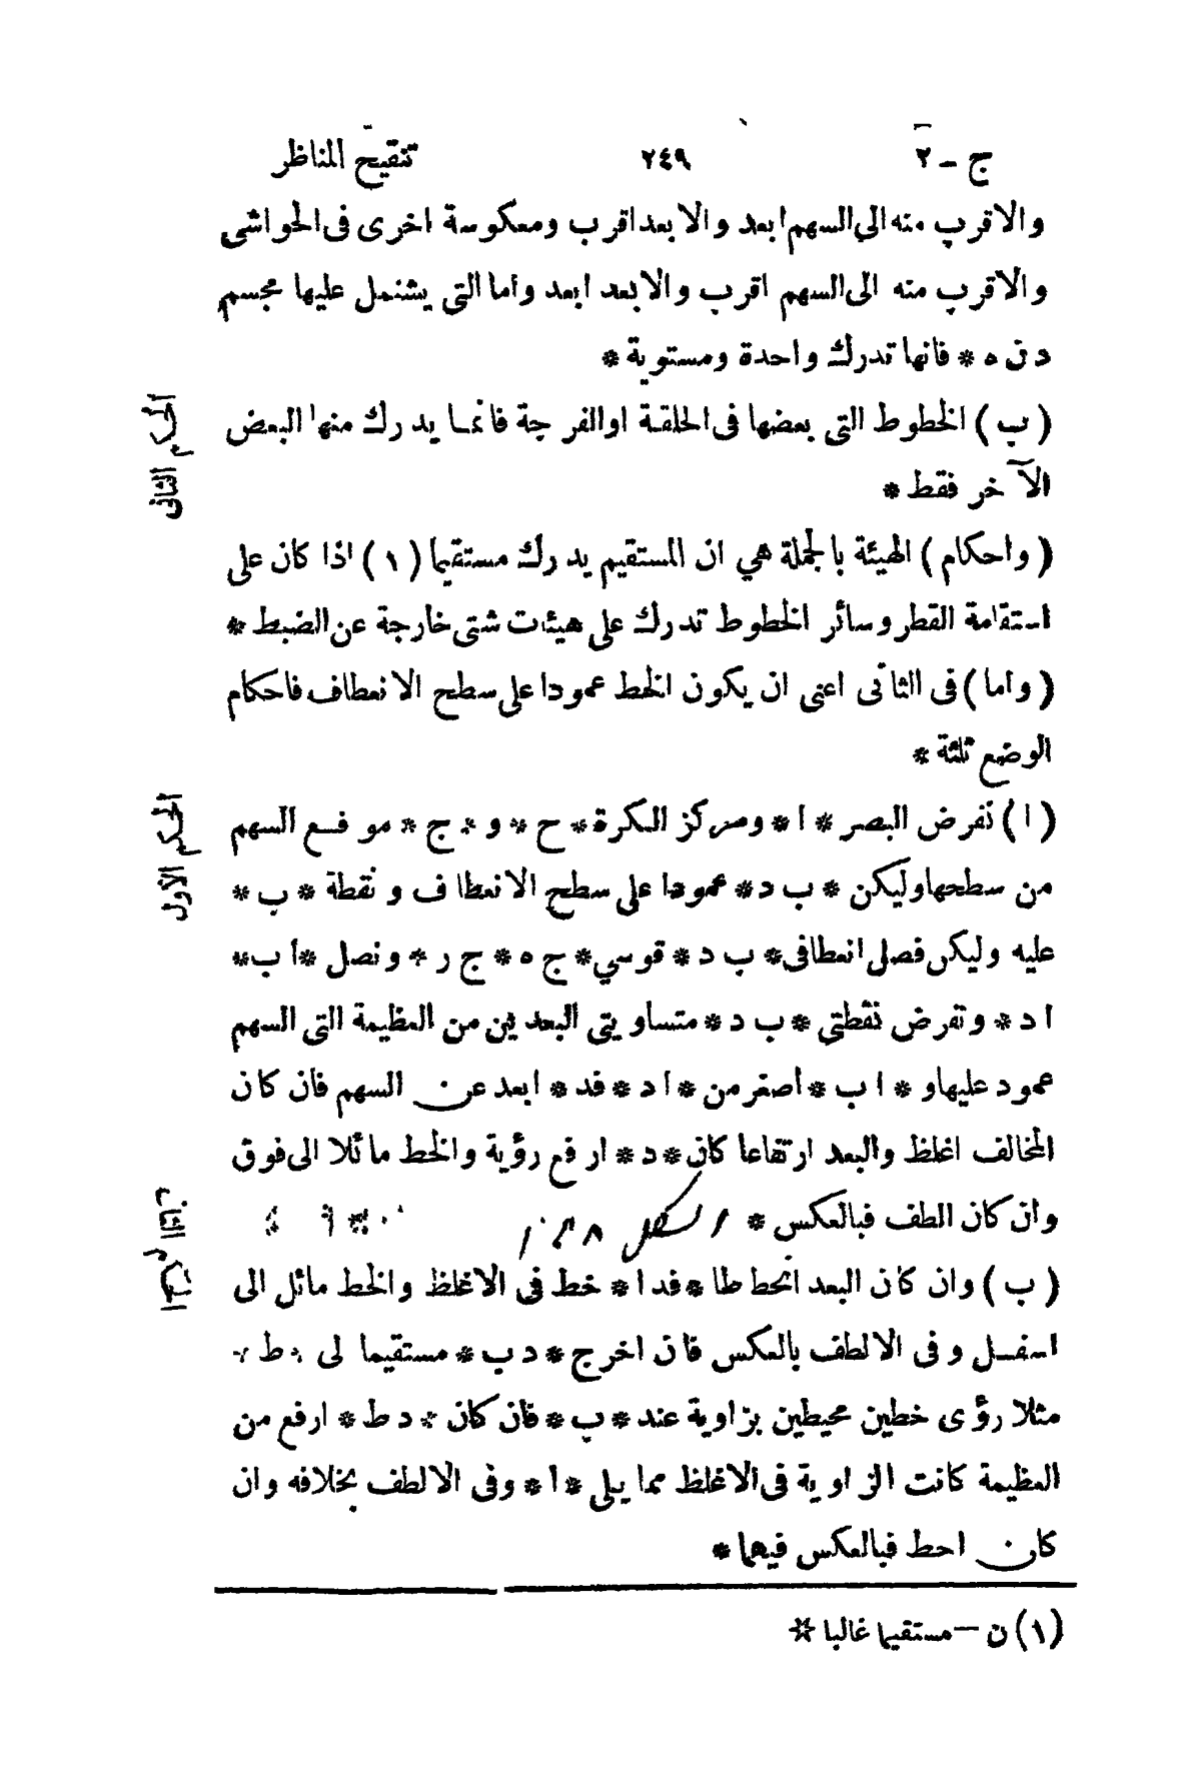 ج - ٢ ٢٤٩ تنقيح المناظر
والاقرب منه الى السهم ابعد والابعد اقرب ومعكوسة اخرى فى الحواشى
والاقرب منه الى السهم اقرب والابعد ابعد واما التى يشتمل عليها مجسم
د ن ه * فانها تدرك واحدة ومستوية *
(ب) الخطوط التى بعضها فى الحلقة او الفرجة فانما يدرك منها البعض
الآخر فقط *
الحكم الثانى
(واحكام) الهيئة بالجملة هي ان المستقيم يدرك مستقيما (١) اذا كان على
استقامة القطر وسائر الخطوط تدرك على هيئات شتى خارجة عن الضبط *
(واما) فى الثانى اعنى ان يكون الخط عمودا على سطح الانعطاف فاحكام
الوضع ثلثة *
(ا) نفرض البصر * ا * ومركز الكرة * ح * و * ج * موقع السهم
من سطحها وليكن * ب د * عمودا على سطح الانعطاف و نقطة * ب *
عليه وليكن فصلى انعطافى * ب د * قوسي * ج ه * ج ر * ونصل * ا ب *
ا د * ونفرض نقطتى * ب د * متساويتى البعدين من العظيمة التى السهم
عمود عليها و * ا ب * اصغر من * ا د * فد * ابعد عن السهم فان كان
المخالف اغلظ والبعد ارتفاعا كان * د * ارفع رؤية والخط مائلا الى فوق
وان كان الطف فبالعكس *
الحكم الاول
(ب) وان كان البعد انحطاطا * فد ا * خط فى الاغلظ والخط مائل الى
اسفل وفى الالطف بالعكس فان اخرج * د ب * مستقيما لى * ط *
مثلا رؤى خطين محيطين بزاوية عند * ب * فان كان * د ط * ارفع من
العظيمة كانت الزاوية فى الاغلظ مما يلى * ا * وفى الالطف بخلافه وان
كان احط فبالعكس فيهما *
الحكم الثانى
(١) ن — مستقيما غالبا *